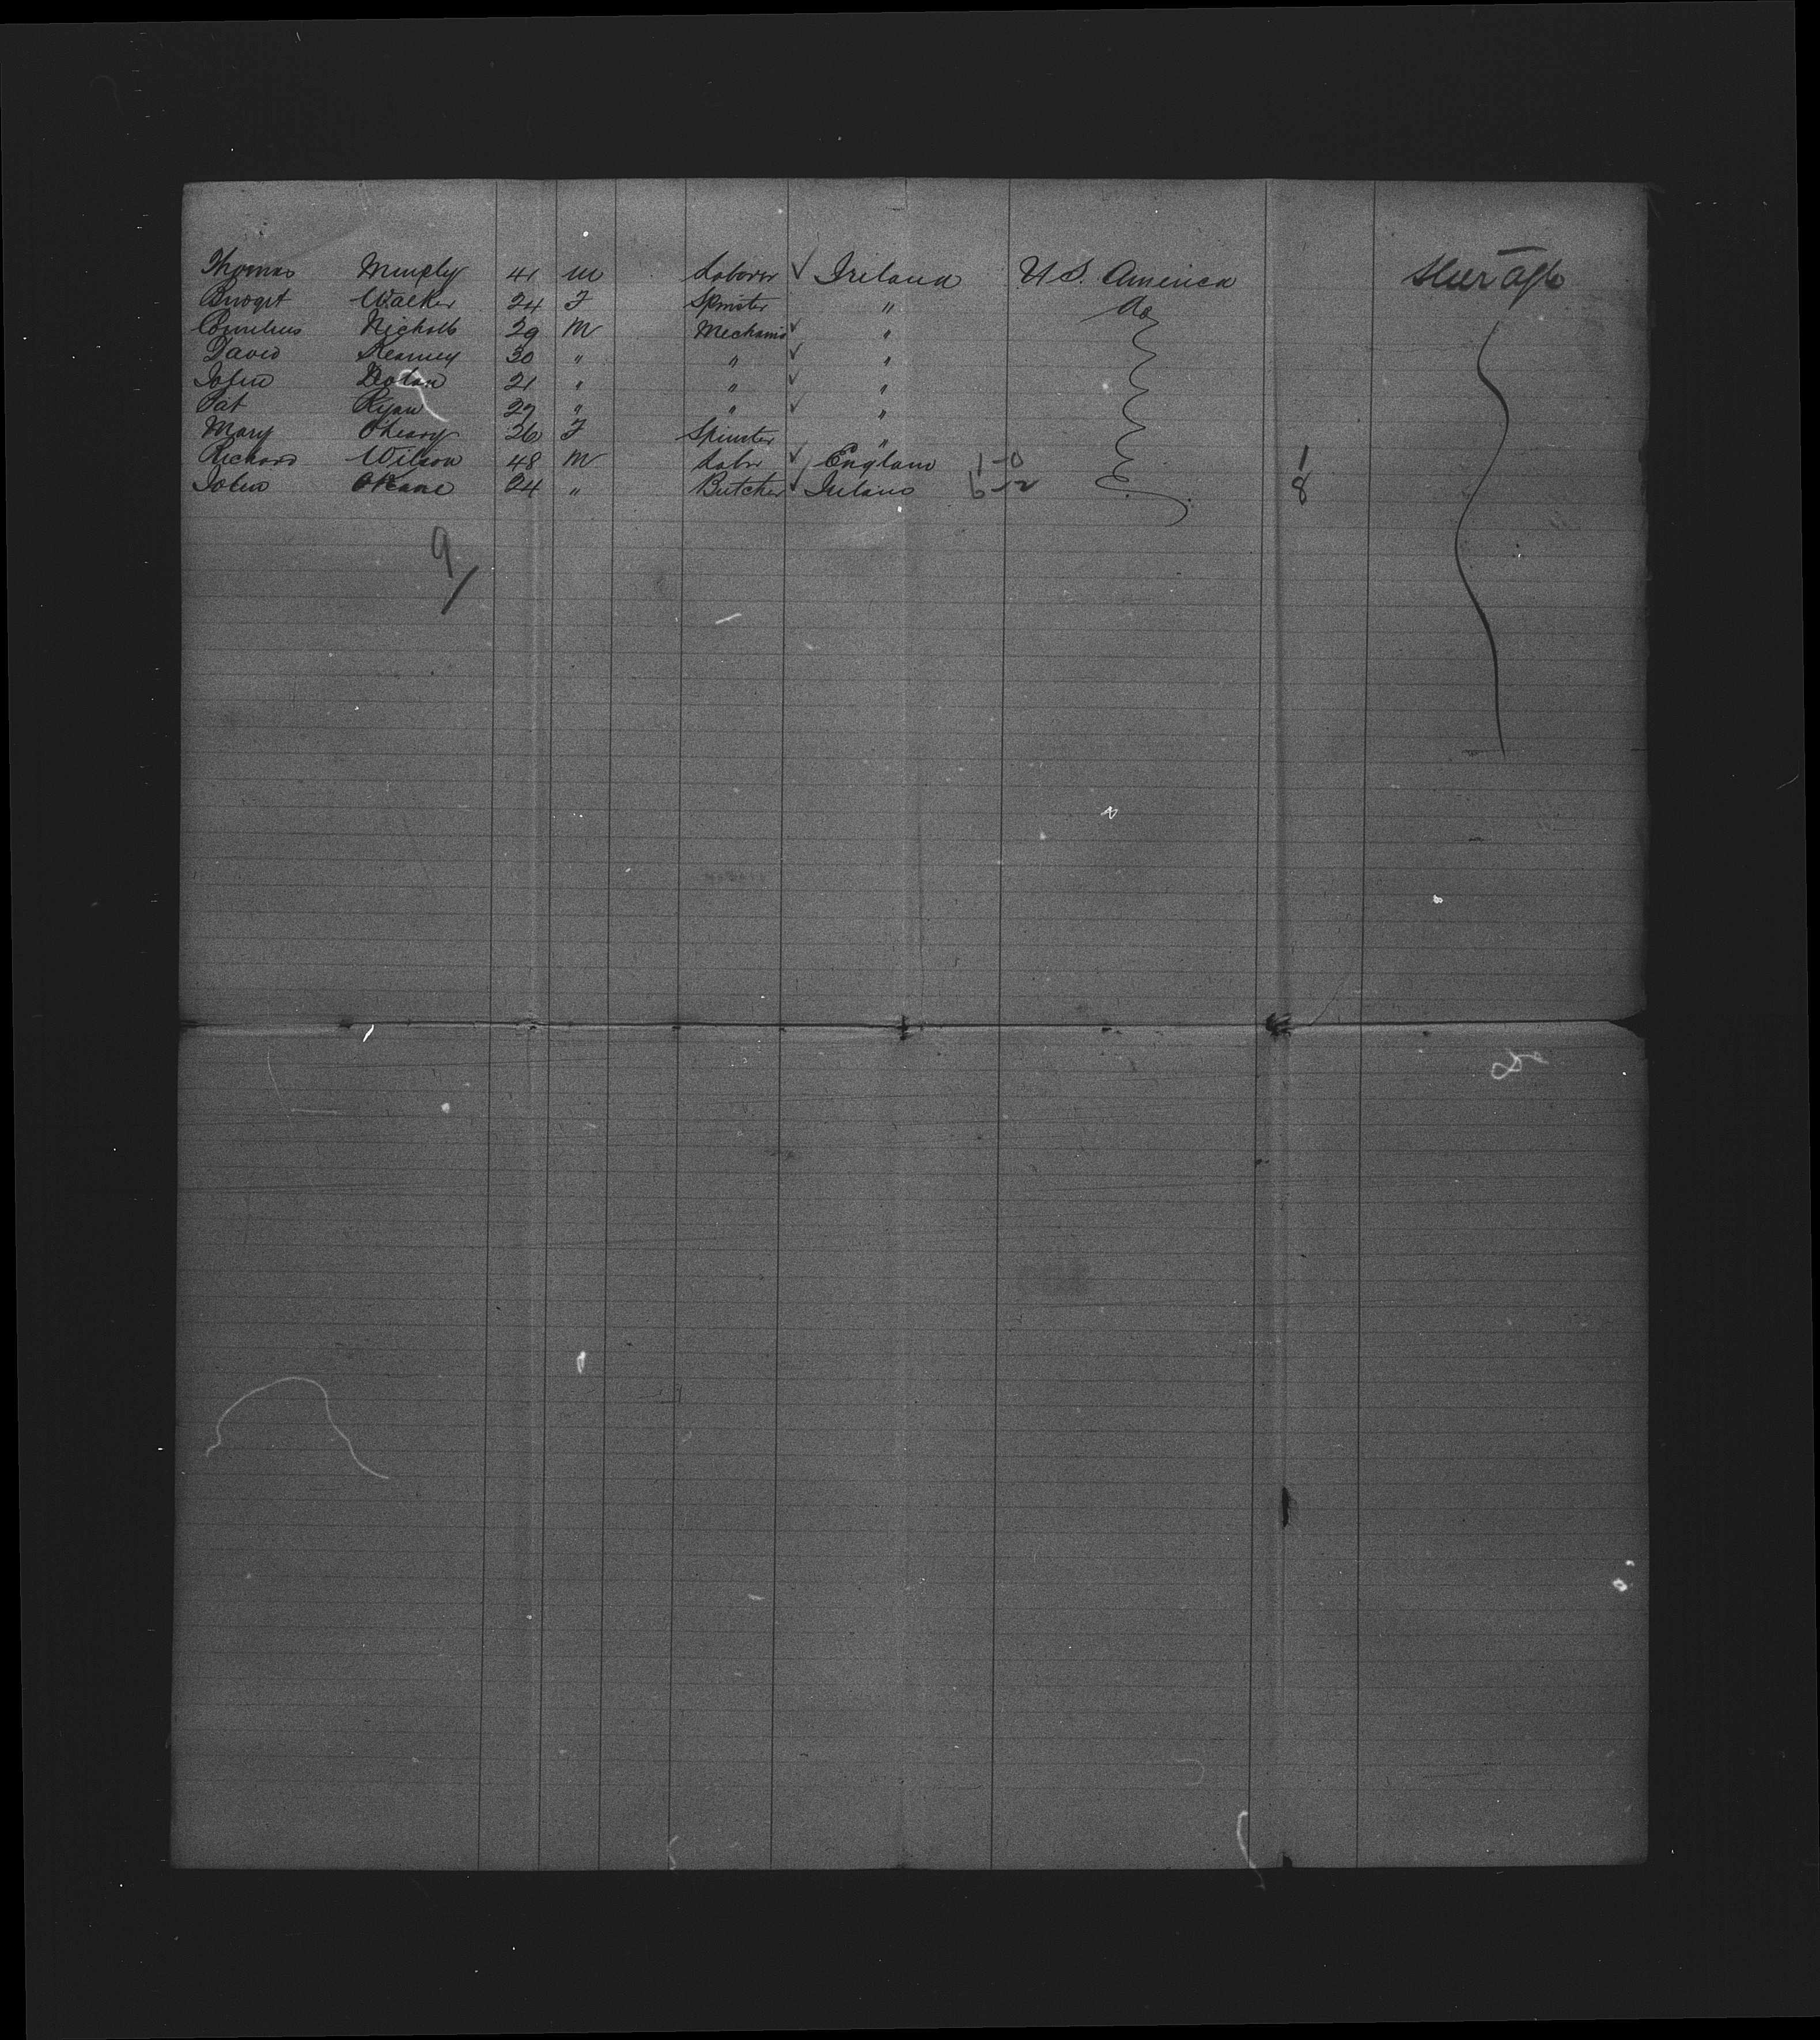 Thomas 41 M Laborer ✓ Ireland U S. America Steer Aft
Bridget Walker 24 F Spinster " Do
Cornelius Nicholls 29 M Mechanic ✓ "
David Kearney 30 " " ✓ "
John 21 " " ✓ "
Pat Ryan 27 " " ✓ "
Mary O'Leary 26 F Spinster "
Richard Wilson 48 M Labor ✓ England 1-0 1
John O'Kane 24 " Butcher ✓ Ireland 6-2 8
9/